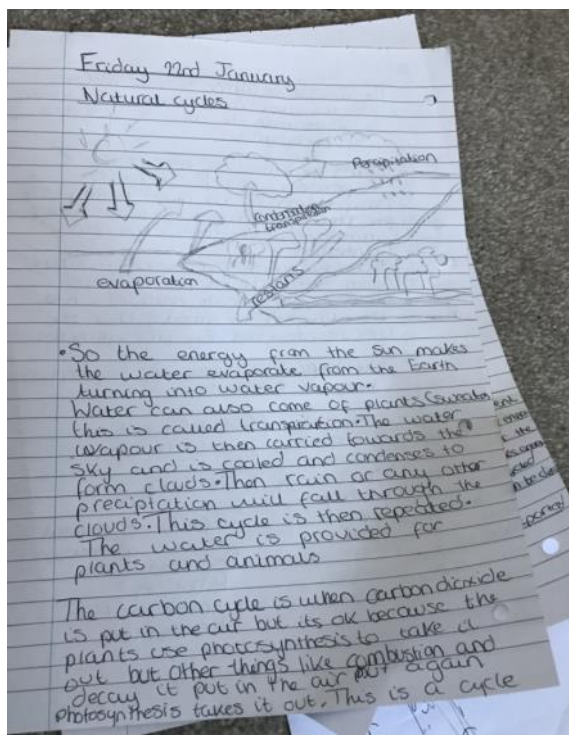 Friday 22nd January
Natural cycles
Percipitation
transpiration
evaporation
•So the energy from the sun makes
the water evaporate from the Earth
turning into water vapour.
Water can also come of plants (sweates
this is called transpiration. The water
vapour is then carried towards the
sky and is cooled and condenses to
form clouds. Then rain or any other
preciptation will fall through the
clouds. This cycle is then repeated.
The water is provided for
plants and animals
The carbon cycle is when carbondioxide
is put in the air but its ok because the
plants use photosynthesis to take it
out but other things like combustion and
decay it put in the air but again
photosynthesis takes it out. This is a cycle